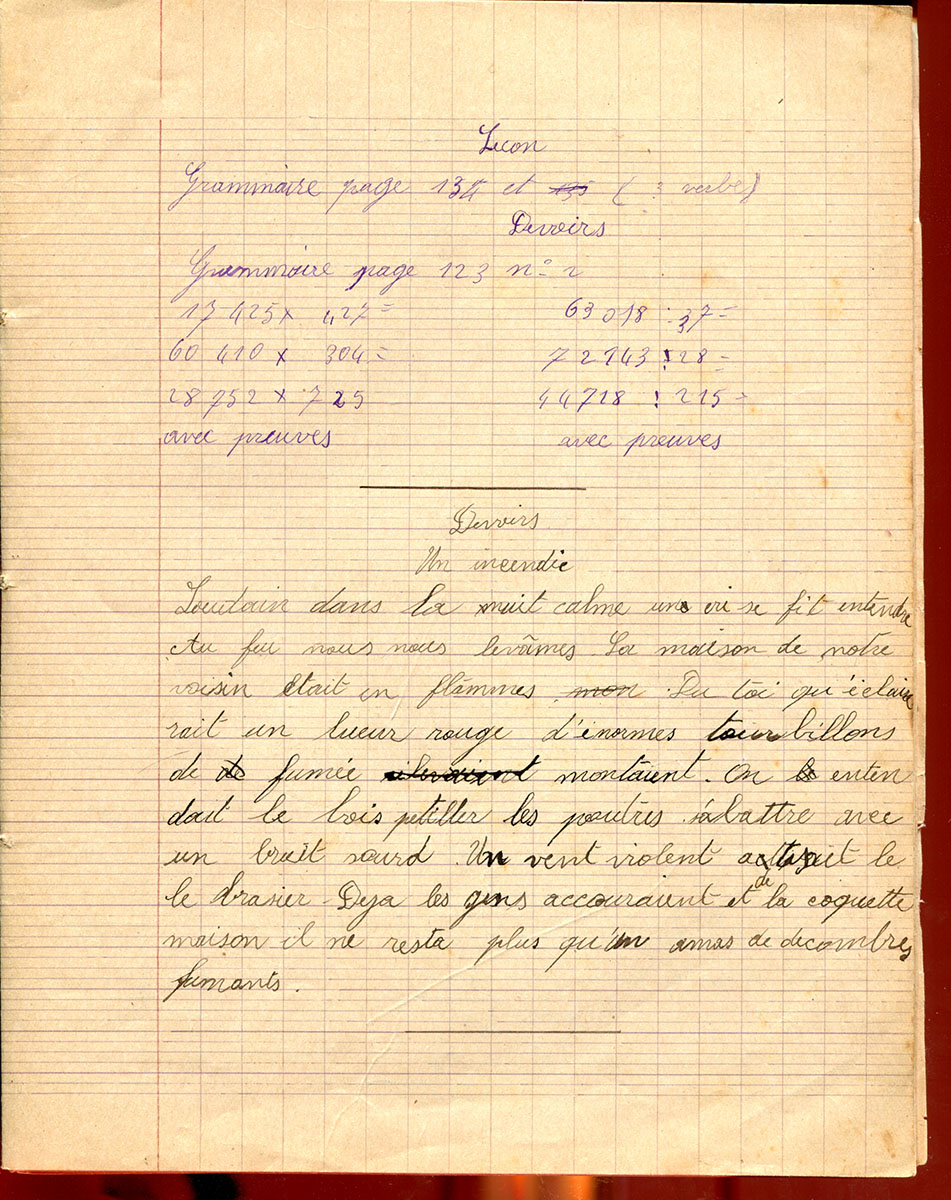 Leçon
Grammaire page 134 et 135 ( verbe)
Devoirs
Grammaire page 123 n° 2
17 425 x 427 = 63 018 : 37 =
60 410 x 304 = 72 143 : 28 =
28 752 x 725 44 718 : 215 =
avec preuves avec preuves
Devoirs
Un incendie
Soudain dans la nuit calme un cri se fit entendre
Au feu nous nous levâmes. La maison de notre
voisin était en flammes mon. Du toi qu'éclai
rait un lueur rouge d'énormes tourbillons
de de fumée montaient. On enten
dait le bois petiller les poutres s'abattre avec
un bruit sourd. Un vent violent le
le brasier. Deja les gens accouraient et de la coquette
maison il ne resta plus qu'un amas de decombres
fumants.